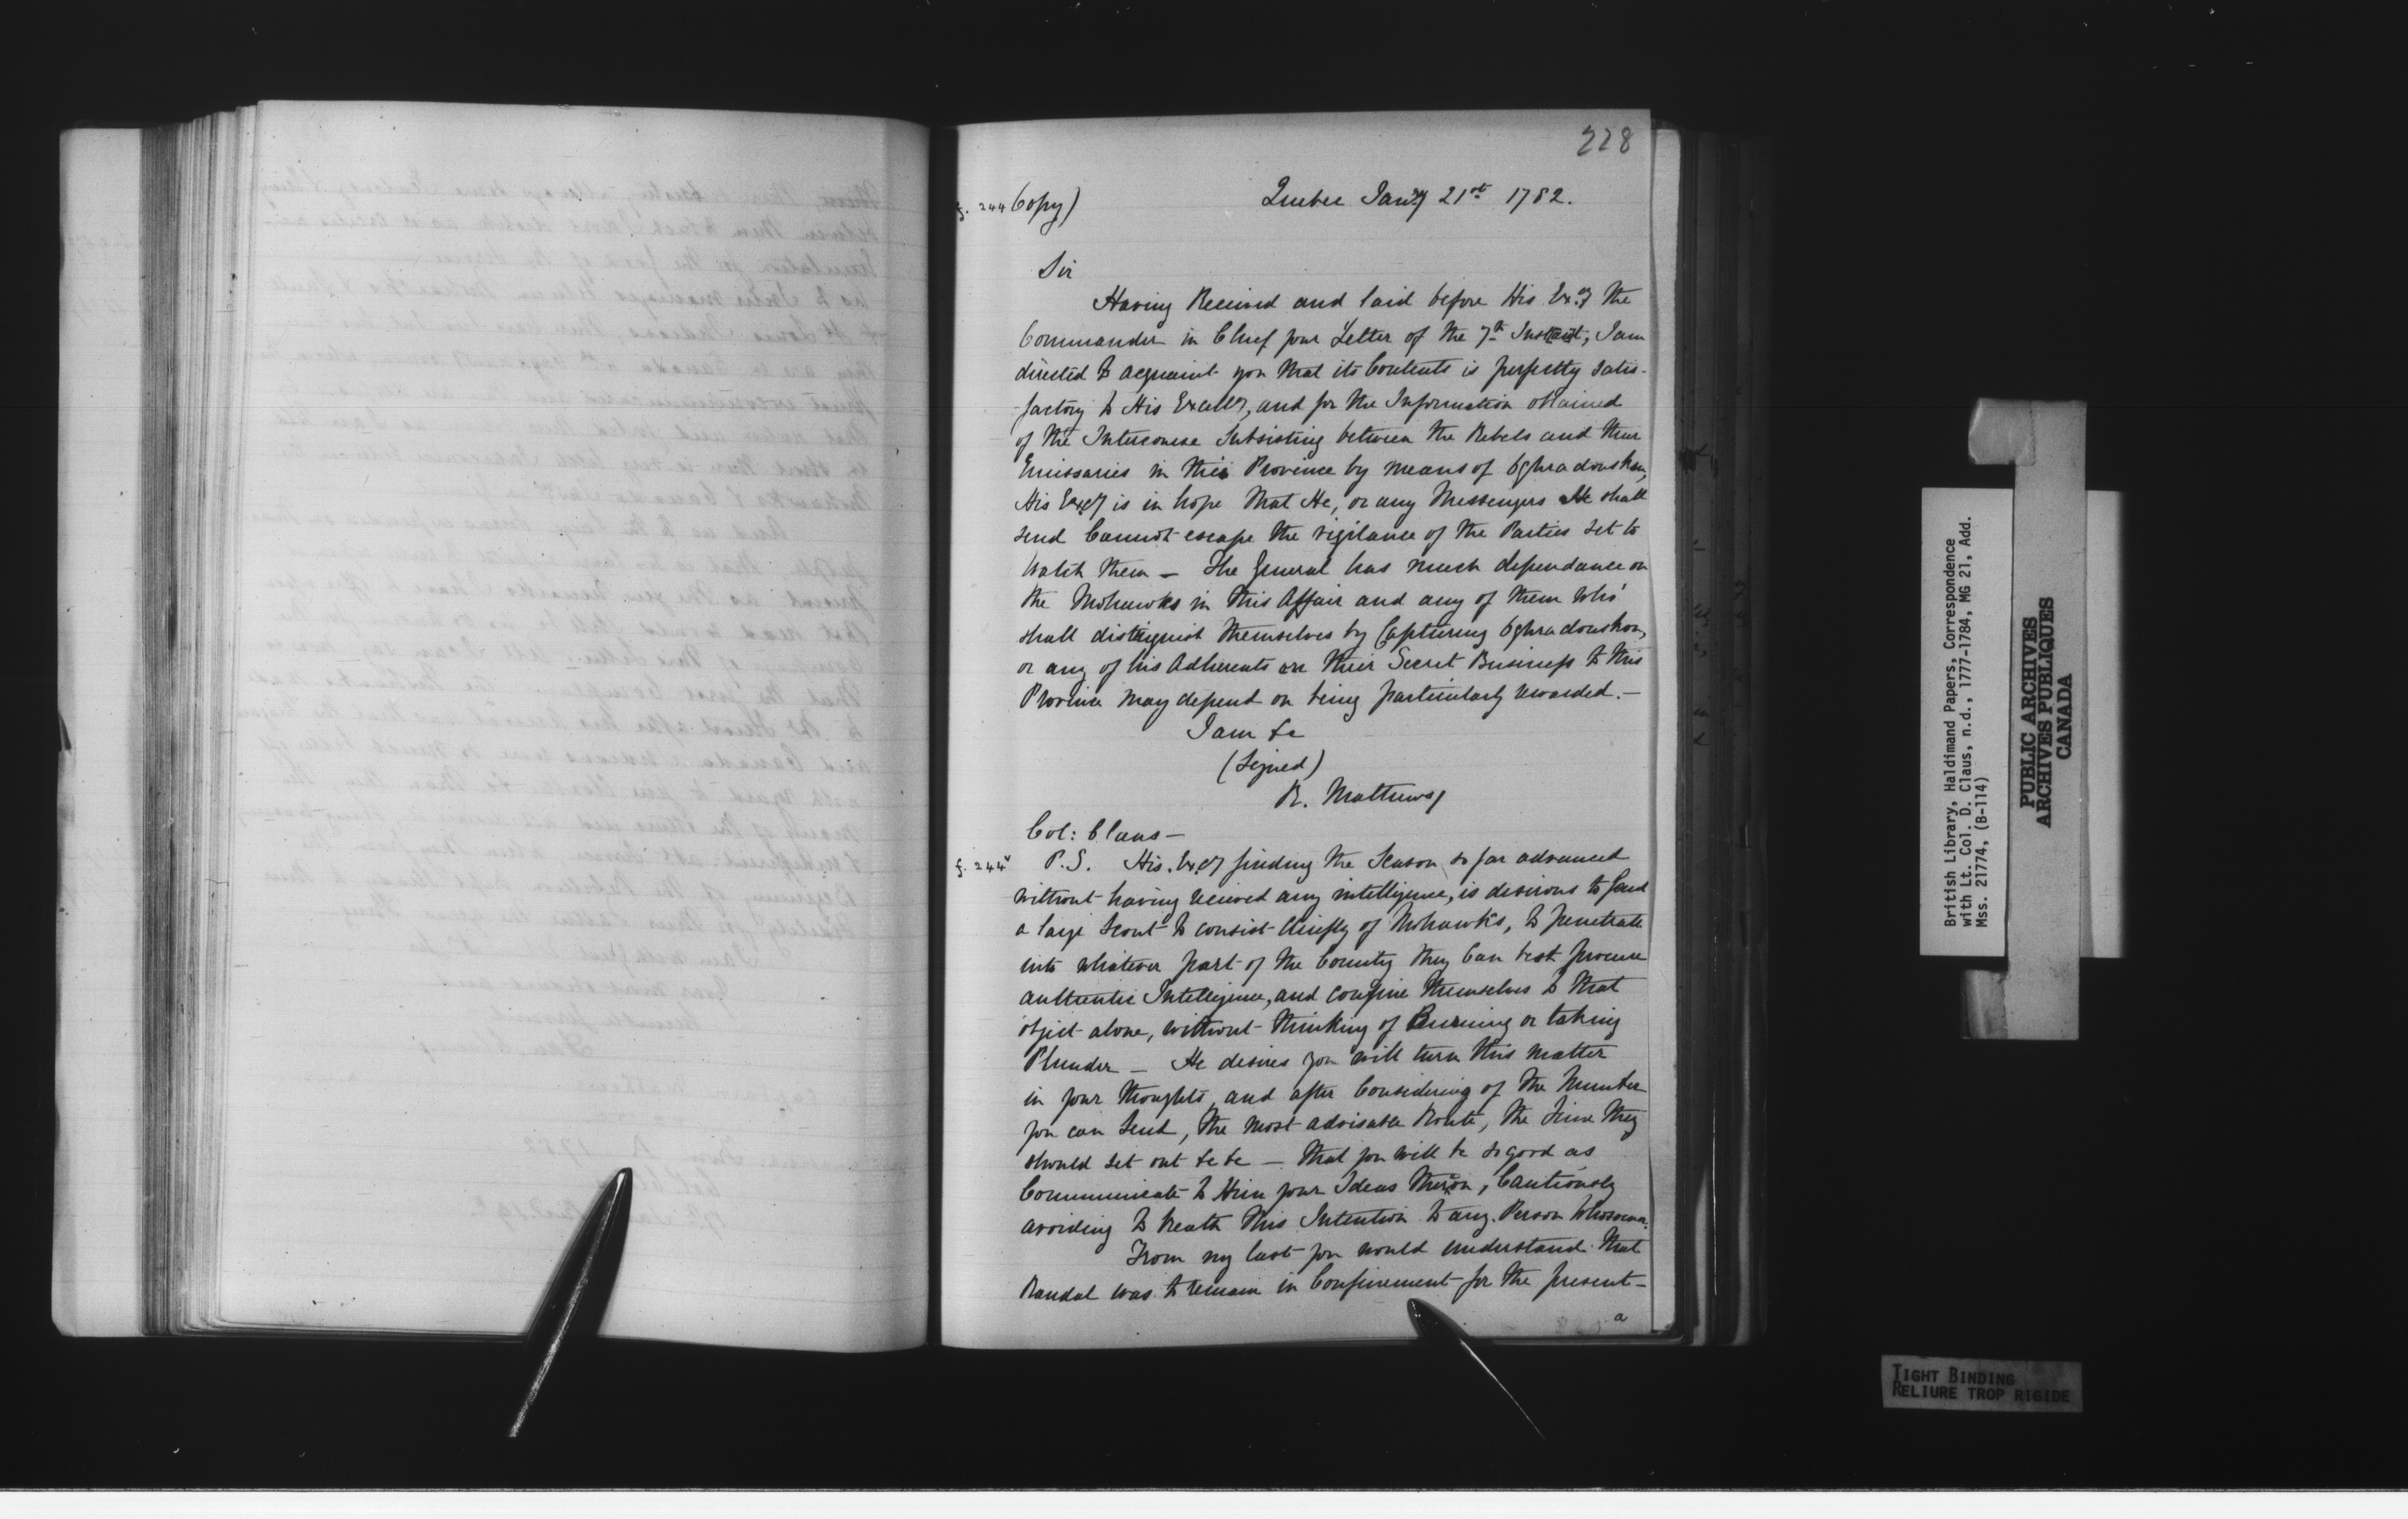 228
f. 244 Copy)
Quebec Jan:ry 21st 1782.
Sir
Having Received and laid before His Ex:cy the
Commander in Chief your Letter of the 7th Instant, I am
directed to acquaint you that its Contents is perfectly satis-
-factory to His Excelly, and for the Information obtained
of the Intercourse Subsisting between the Rebels and their
Emissaries in this Province by means of Oghradouskon,
His Ex:cy is in hope that He, or any Messengers He shall
send Cannot escape the vigilance of the Parties set to
Watch them — The General has much dependance on
the Mohawks in this Affair and any of them who
shall distinguish themselves by Capturing Oghradouskon,
or any of his Adherents on their Secret Business to this
Province may depend on being particularly rewarded. —
I am &c
(Signed)
R. Mathews
Col: Claus —
f. 244v P.S. His Ex:cy finding the Season so far advanced
without having received any intelligence, is desirous to send
a large Scout to consist Chiefly of Mohawks, to penetrate
into whatever part of the Country they Can best procure
authentic Intelligence, and confine themselves to that
object alone, without thinking of Burning or taking
Plunder — He desires you will turn this matter
in your thoughts, and after Considering of the Number
you can Send, the most advisable Route, the time they
should set out &c &c — that you will be so good as
Communicate to Him your Ideas thereon, Cautiously
avoiding to breath this Intention to any Person Whosoever.
From my last you would understand that
Randal was to remain in Confinement for the present —
a
British Library, Haldimand Papers, Correspondence
with Lt. Col. D. Claus, n.d., 1777-1784, MG 21, Add.
Mss. 21774, (B-114)
PUBLIC ARCHIVES
ARCHIVES PUBLIQUES
CANADA
TIGHT BINDING
RELIURE TROP RIGIDE